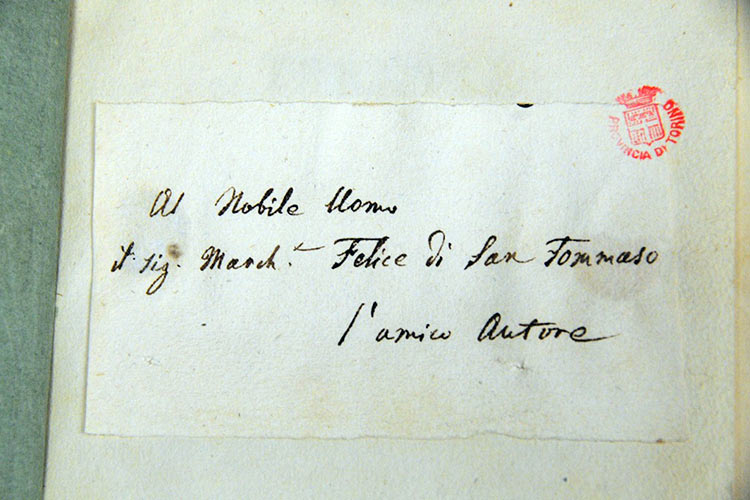 PROVINCIA DI TORINO
Al Nobile Uomo
il sig. March.e Felice di San Tommaso
l'amico Autore